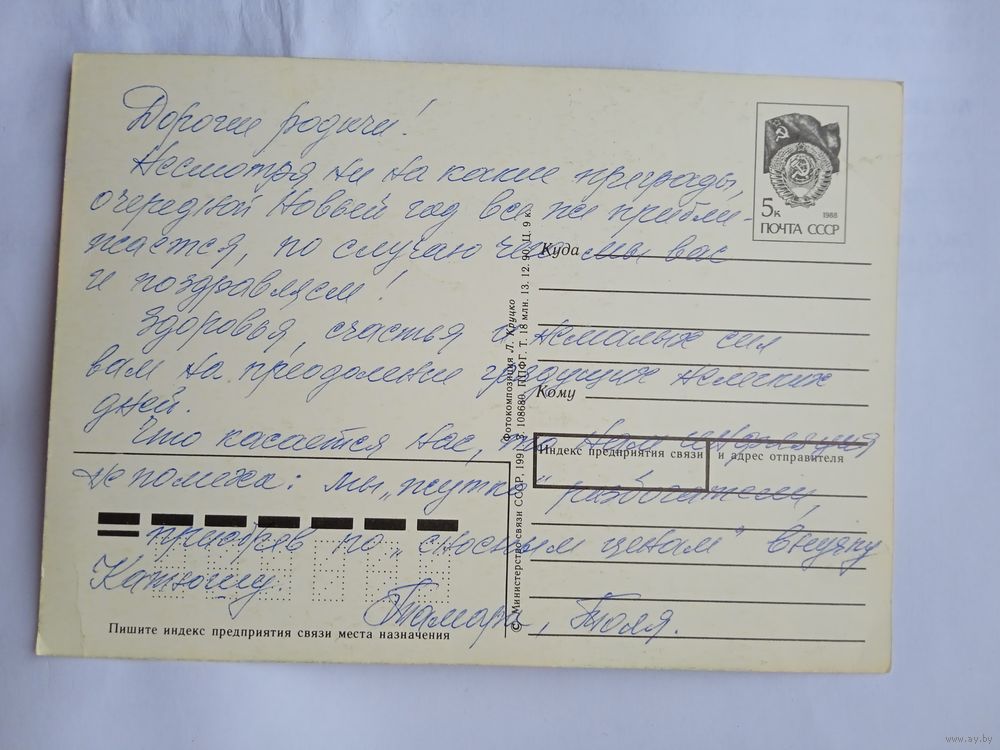 Дорогие родичи!
Несмотря ни на какие преграды,
очередной Новый год все же прибли-
жается, по случаю чего мы вас
и поздравляем!
Здоровья, счастья и немалых сил
вам на преодоление грядущих нелегких
дней.
Что касается нас, то нам инфляция
не помеха: мы „жутко" разбогатели,
приобрев по „сносным ценам" внучку
Катюшу.
Тамара, Толя.
5к
1988
ПОЧТА СССР
Куда
Кому
Индекс предприятия связи и адрес отправителя
Пишите индекс предприятия связи места назначения
Фотокомпозиция Л. Круцко
© Министерство связи СССР, 1991. З. 108680. ППФГ. Т. 18 млн. 13. 12. 90. Ц. 9 к.
www.ay.by